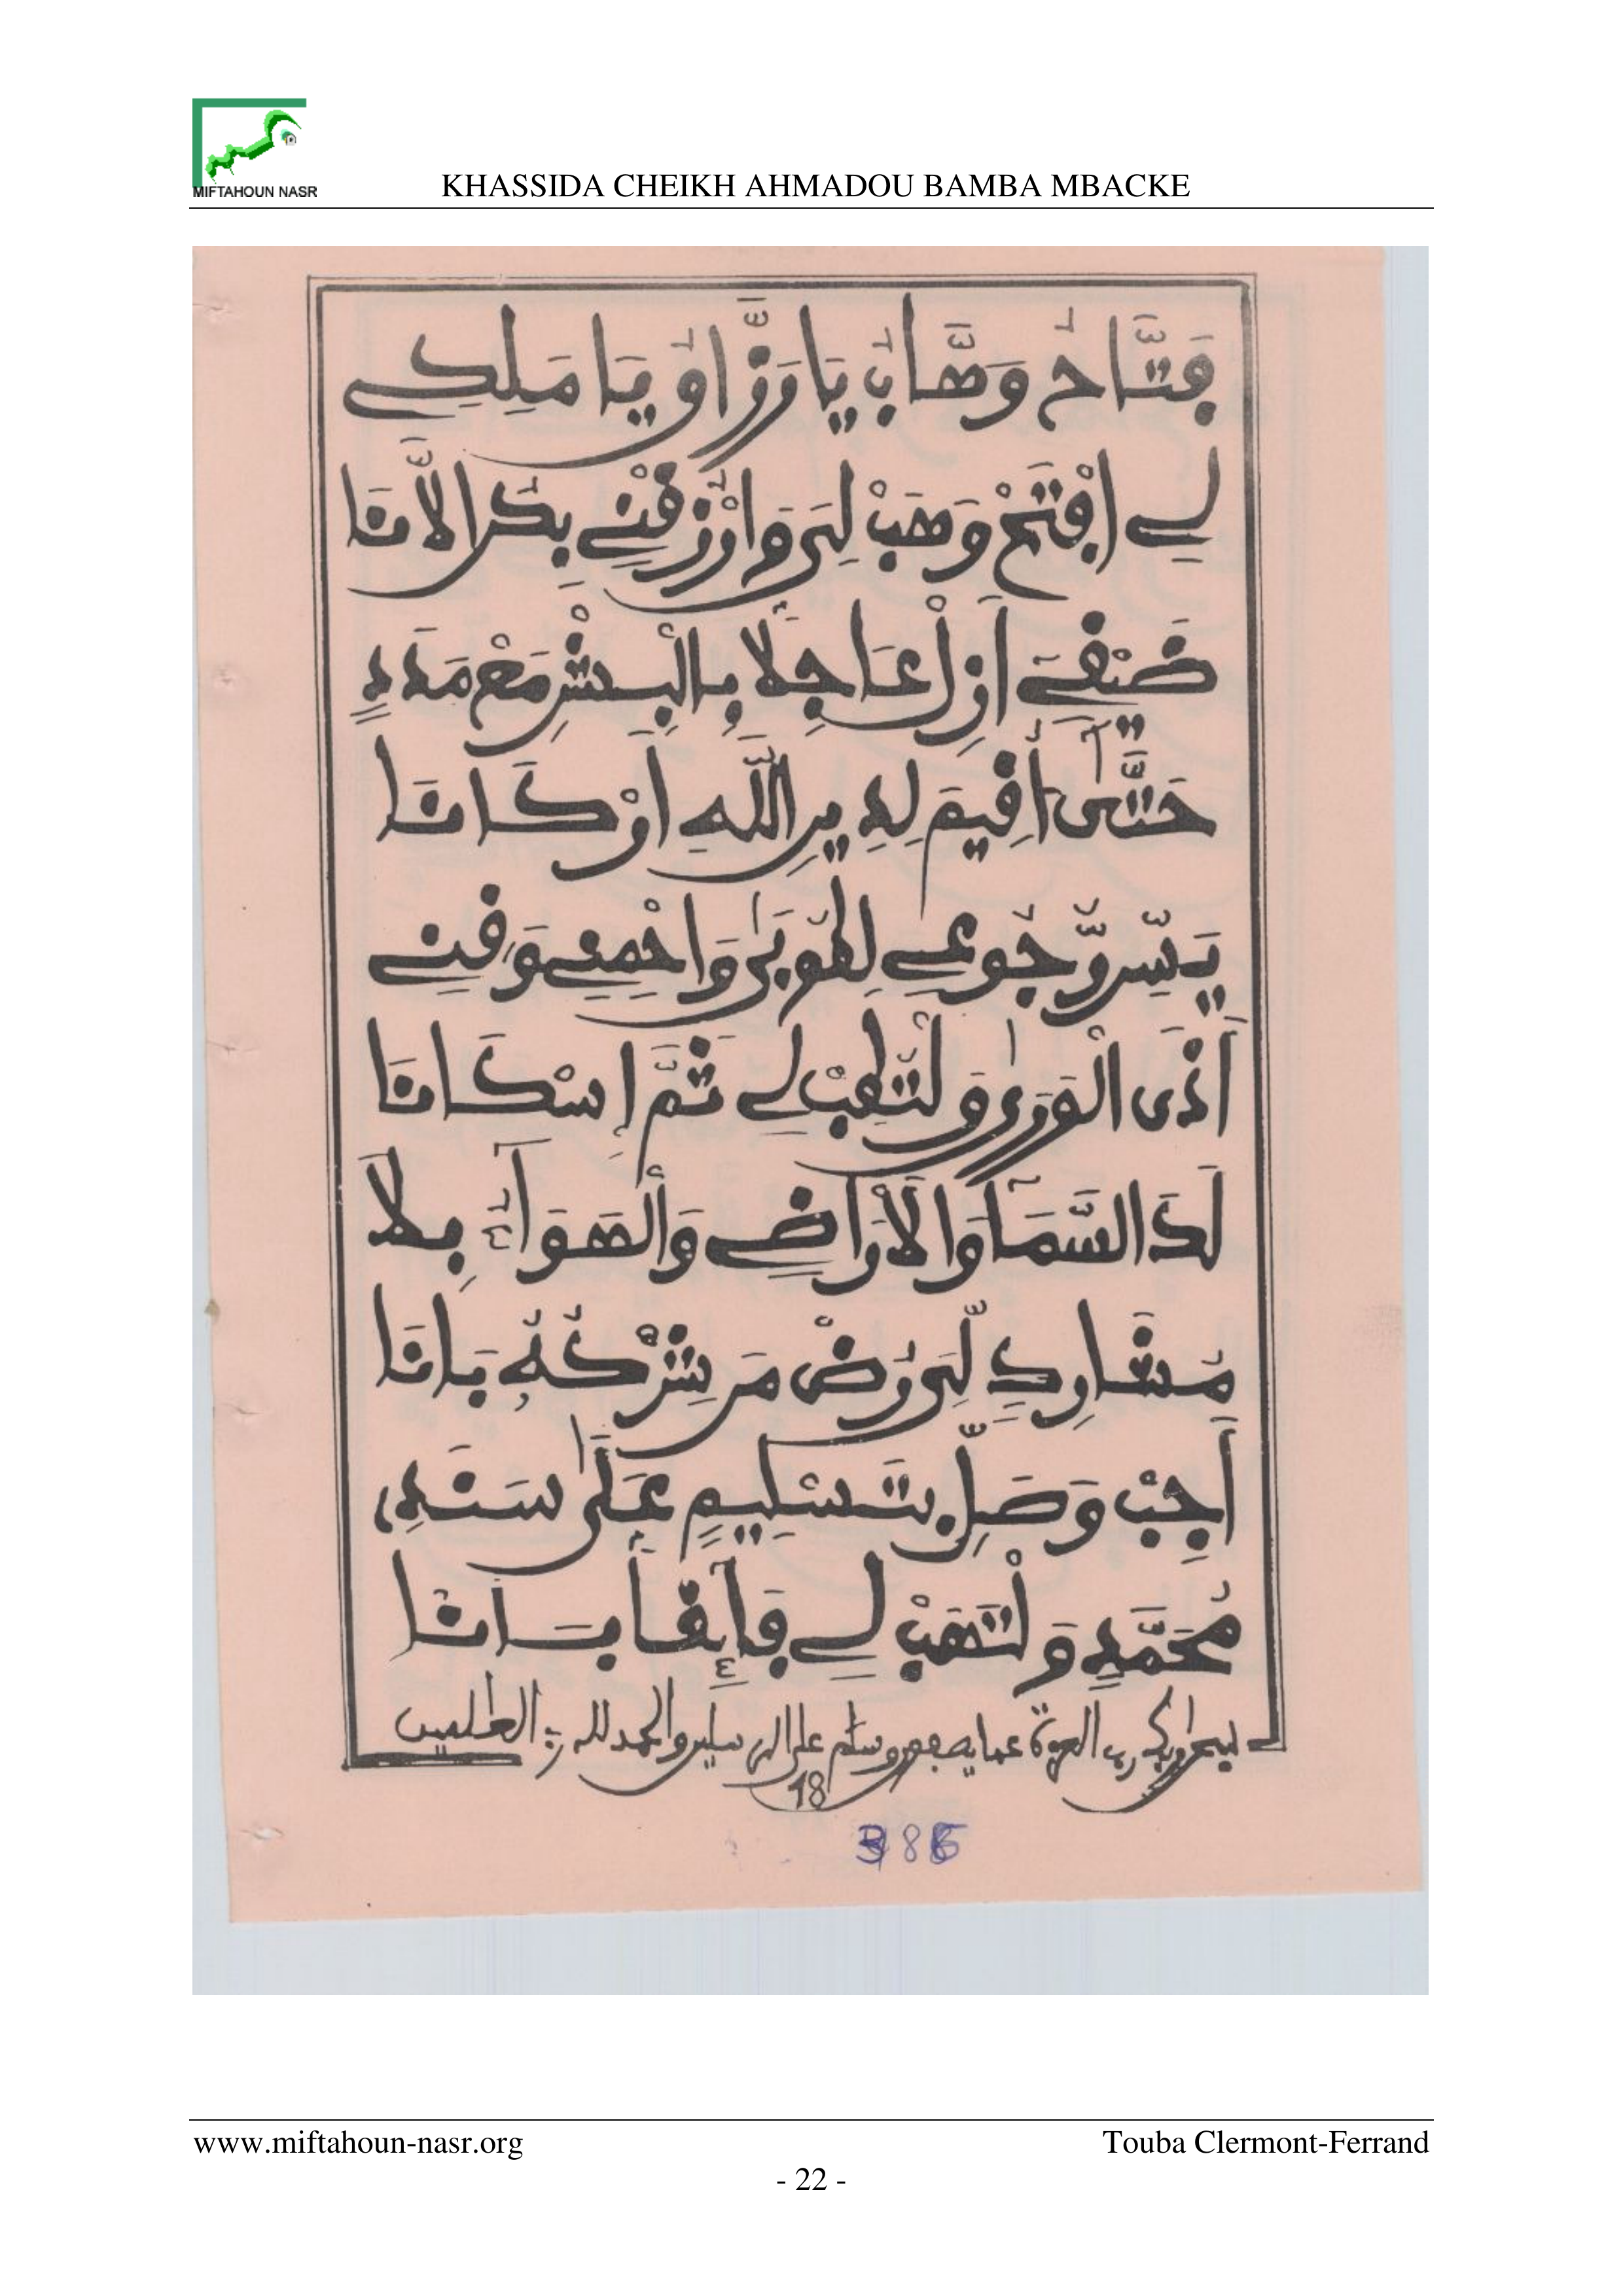 MIFTAHOUN NASR
KHASSIDA CHEIKH AHMADOU BAMBA MBACKE
فَتَّاحُ وَهَّابُ يَا رَزَّاقُ يَا مَلِكِي
لِي افْتَحْ وَهَبْ لِيَ وَارْزُقْنِي بِكَ الْأَنَا
ضَيْفِي أَزِلْ عَاجِلًا بِالْبِشْرِ مَعْ مَدَدٍ
حَتَّى أُقِيمَ لِدِينِ اللَّهِ أَرْكَانَا
يَسِّرْ رُّجُوعِي لِطُوبَى وَاحْمِنِي وَقِنِي
أَذَى الْوَرَى وَلْتَهَبْ لِي ثَمَّ إِسْكَانَا
لَدَ السَّمَا وَالْأَرَاضِي وَالْهَوَاءِ بِلَا
مُشَارِكٍ لِّيَ رُضْ مَن شِرْكُهُ بَانَا
أَجِبْ وَصَلِّ بِتَسْلِيمٍ عَلَى سَنَدِي
مُحَمَّدٍ وَلْتَهَبْ لِي فِي
سبحن ربك رب العزة عما يصفون وسلم على المرسلين والحمد لله رب العلمين
18
www.miftahoun-nasr.org
Touba Clermont-Ferrand
- 22 -